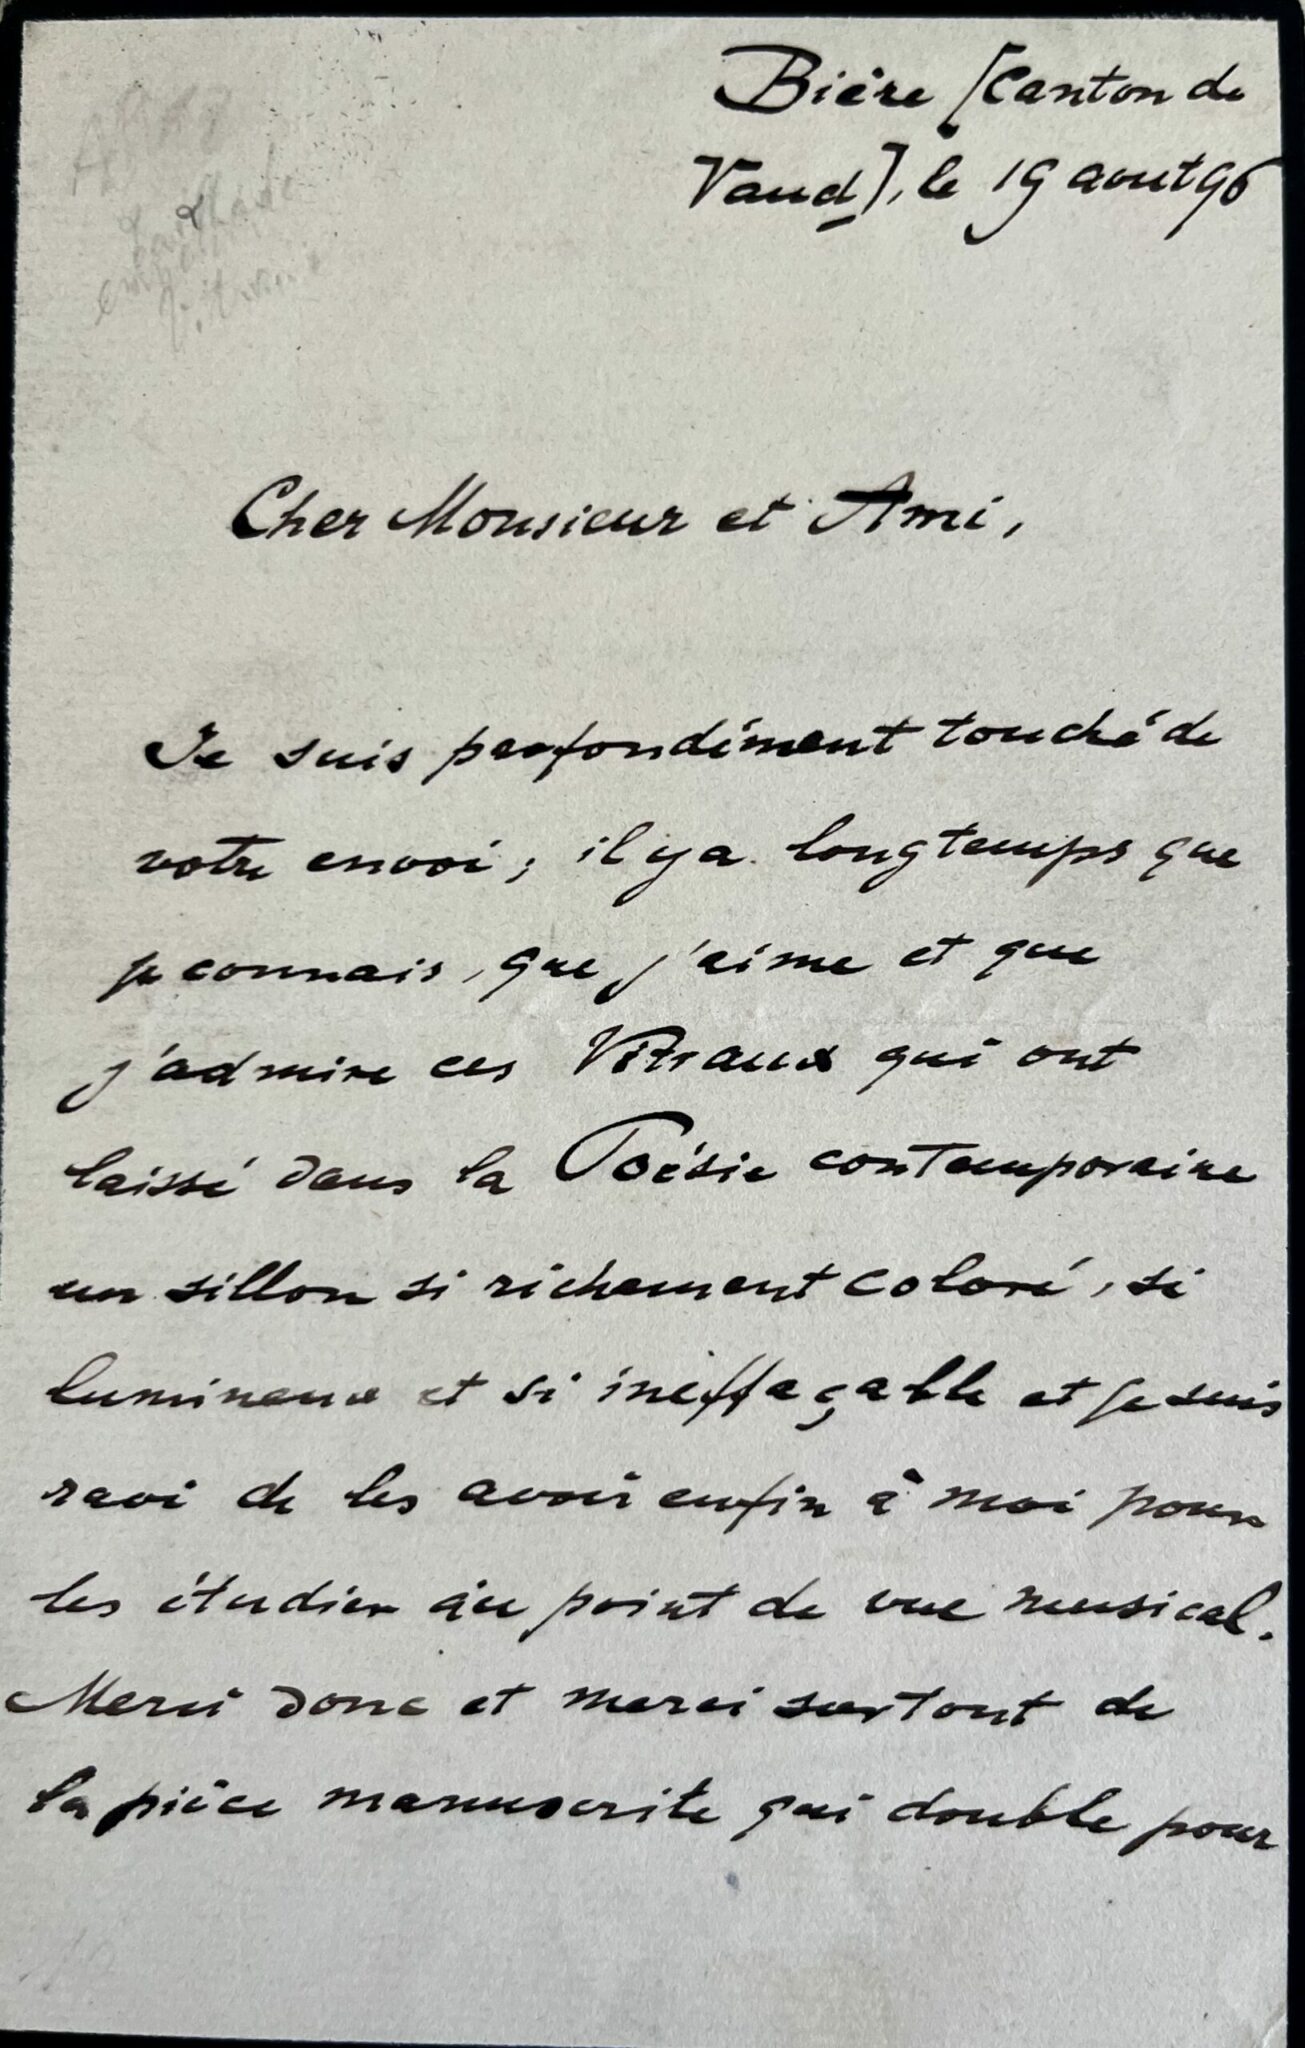 Bière [Canton de
Vaud], le 19 aout 96
Cher Monsieur et Ami,
Je suis profondément touché de
votre envoi; il y a longtemps que
je connais, que j'aime et que
j'admire ces Vitraux qui ont
laissé dans la Poésie contemporaine
un sillon si richement coloré, si
lumineux et si ineffaçable et je suis
ravi de les avoir enfin à moi pour
les étudier au point de vue musical.
Merci donc et merci surtout de
la pièce manuscrite qui double pour